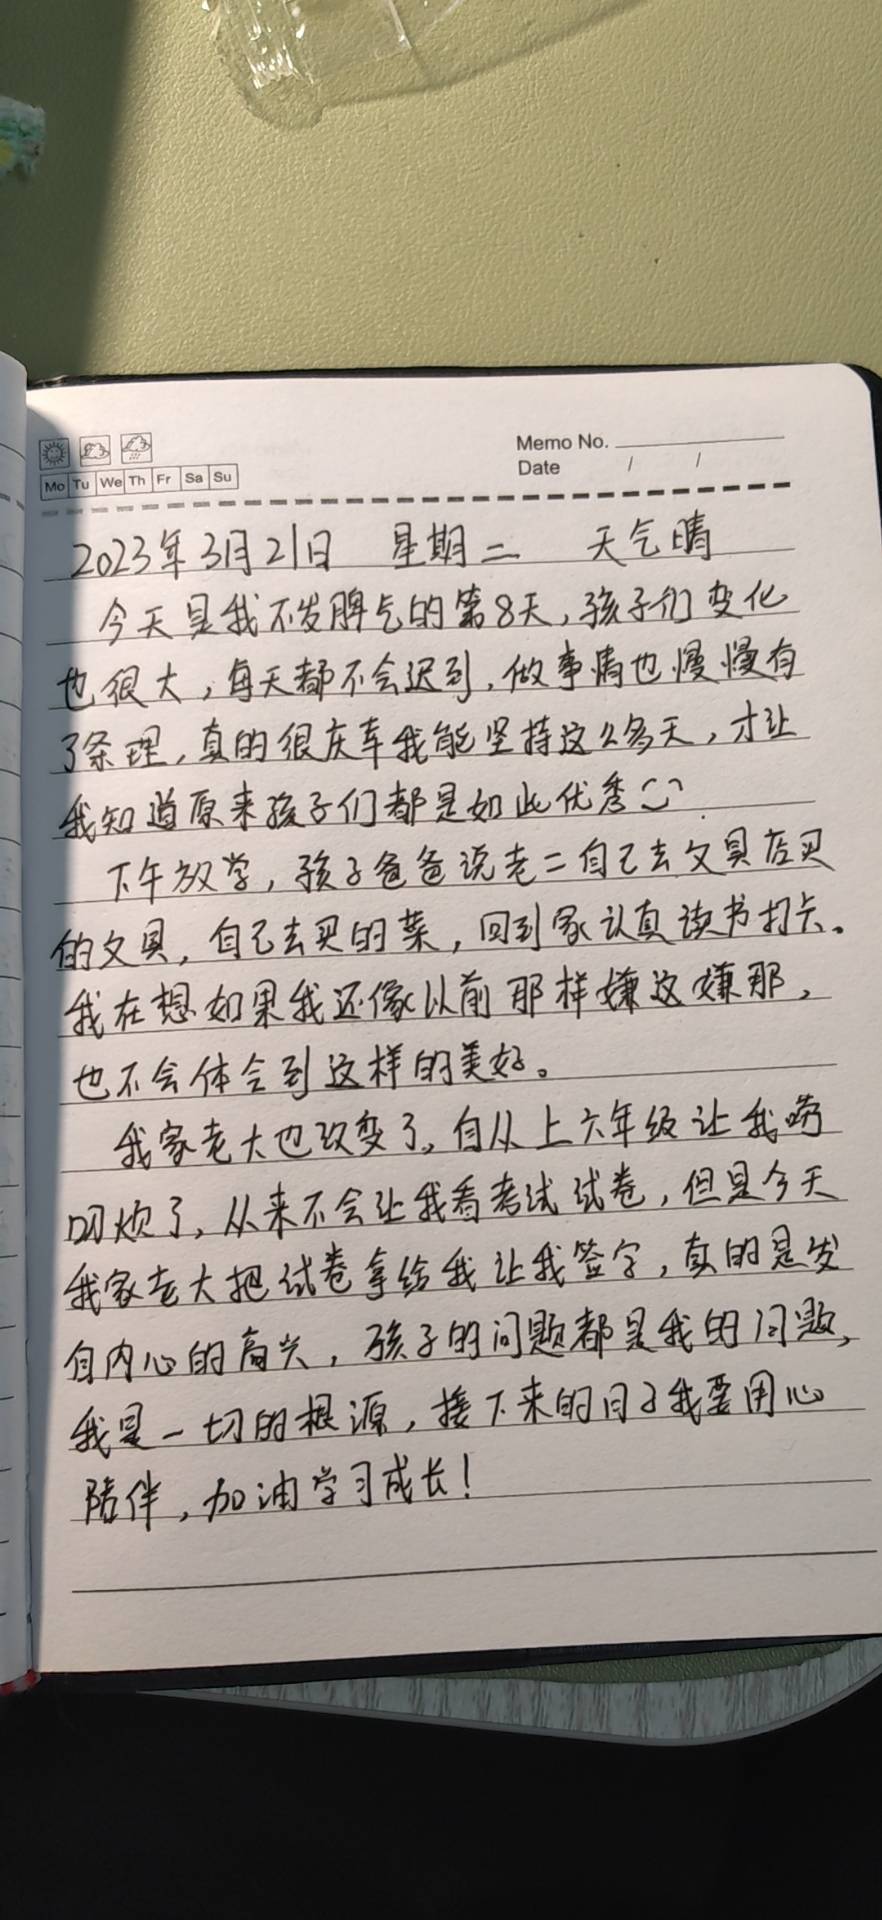 Memo No.
Mo Tu We Th Fr Sa Su
Date / /
2023年3月21日 星期二 天气晴
今天是我不发脾气的第8天,孩子们变化
也很大,每天都不会迟到,做事情也慢慢有
了条理,真的很庆幸我能坚持这么多天,才让
我知道原来孩子们都是如此优秀
下午放学,孩子爸爸说老二自己去文具店买
的文具,自己去买的菜,回到家认真读书打卡。
我在想如果我还像以前那样嫌这嫌那,
也不会体会到这样的美好。
我家老大也改变了,自从上六年级让我唠
叨烦了,从来不会让我看考试试卷,但是今天
我家老大把试卷拿给我让我签字,真的是发
自内心的高兴,孩子的问题都是我的问题,
我是一切的根源,接下来的日子我要用心
陪伴,加油学习成长!